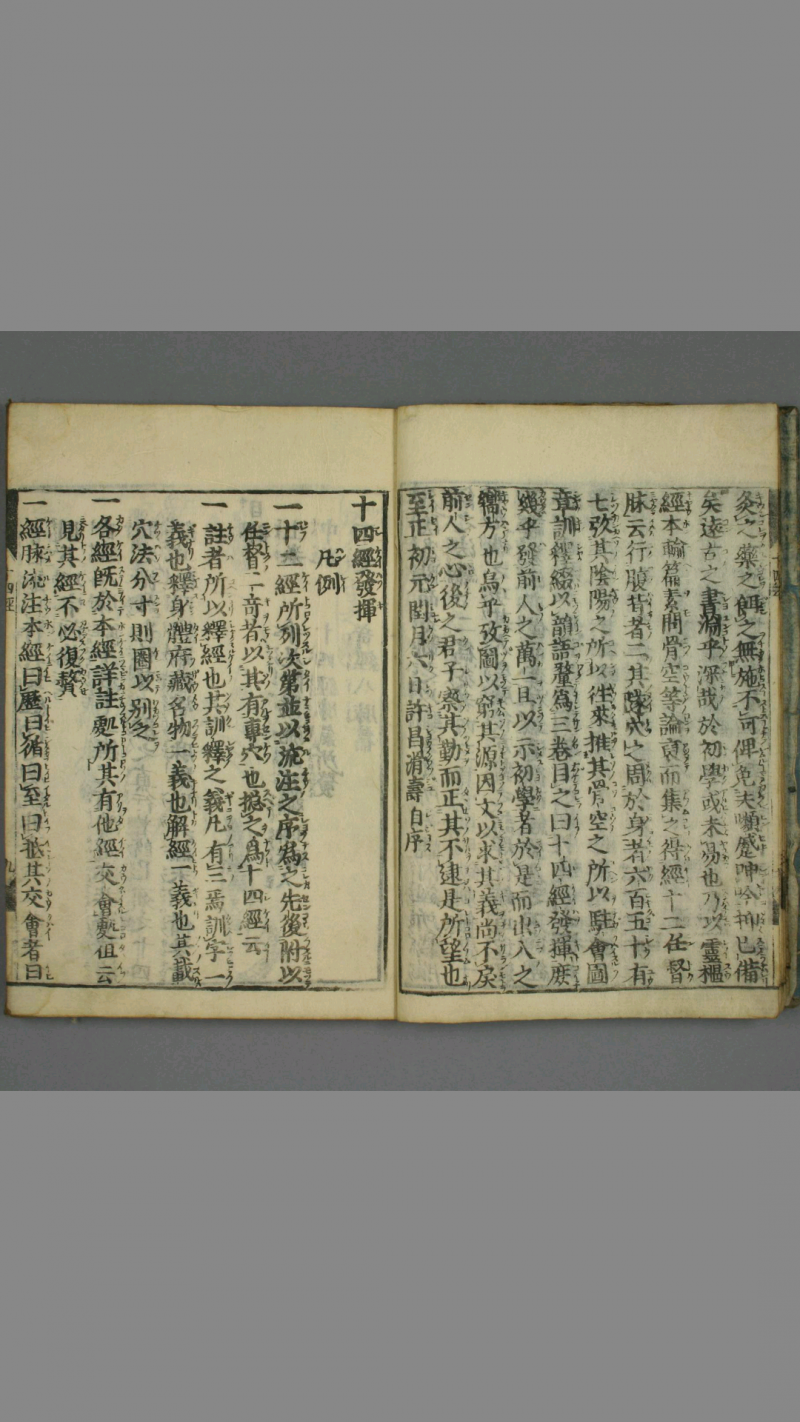 灸之藥之餌之無施不可俾免夫嚬蹙呻吟抑已備
矣遠古之書淵乎深哉於初學或未易也乃以靈樞
經本輸篇素問骨空等論裒而集之得經十二任督
脉云行腹背者二其隧穴之周於身者六百五十有
七攷其陰陽之所以往來推其骨空之所以駐會圖
章訓釋綴以韻語釐為三卷目之曰十四經發揮庶
幾乎發前人之萬一且以示初學者於是而出入之
嚮方也烏乎攷圖以窮其源因文以求其義尚不戾
前人之心後之君子察其勤而正其不逮是所望也
至正初元閏月六日許昌滑壽自序
十四經發揮
凡例
一十二經所列次第並以流注之序為之先後附以
任督二奇者以其有專穴也揔之為十四經云
一註者所以釋經也其訓釋之義凡有三焉訓字一
義也釋身體府藏名物一義也解經一義也其載
穴法分寸則圈以別之
一各經既於本經詳註處所其有他經交會處但云
見某經不必復贅
一經脉流注本經曰歷曰循曰至曰抵其交會者曰